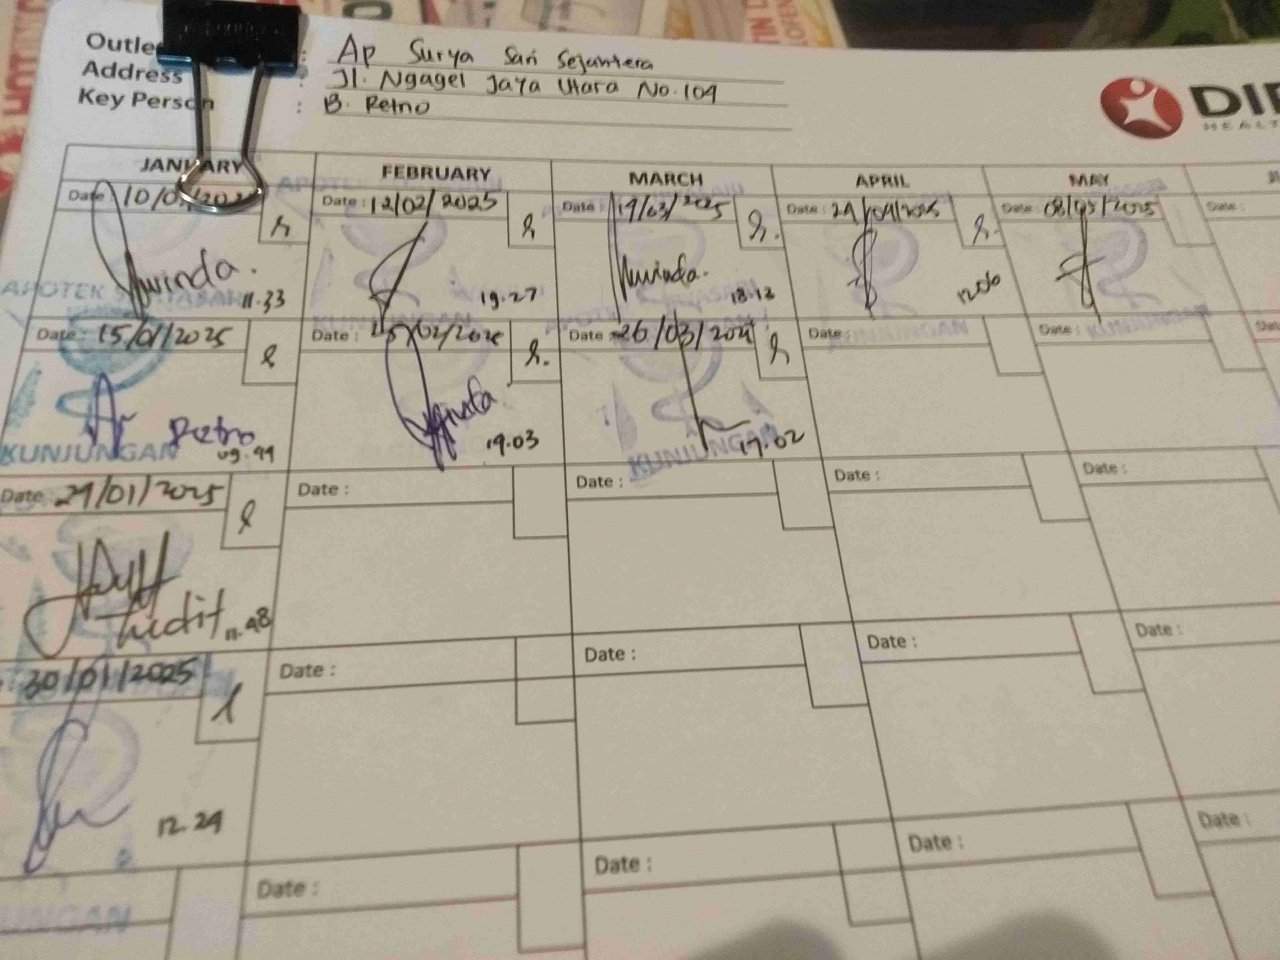 Outle : Ap Surya Sari Sejahtera
Address : Jl. Ngagel Jaya Utara No. 109
Key Person : B. Retno
DI
HEALT
JANUARY FEBRUARY MARCH APRIL MAY
Date : 10/01/202 Date : 12/02/2025 Date : 19/03/2025 Date : 24/04/2025 Date : 08/05/2025 Date :
winda. winda.
11.33 19.27 18.13
APOTEK
KUNJUNGAN
Date : 15/01/2025 Date : Date : 26/03/202 Date : Date :
Retno
09.44 19.03 17.02
KUNJUNGAN KUNJUNGAN
Date 29/01/2025 Date : Date : Date : Date :
11.48
30/01/2025 Date : Date : Date : Date :
12.29
Date : Date : Date : Date :